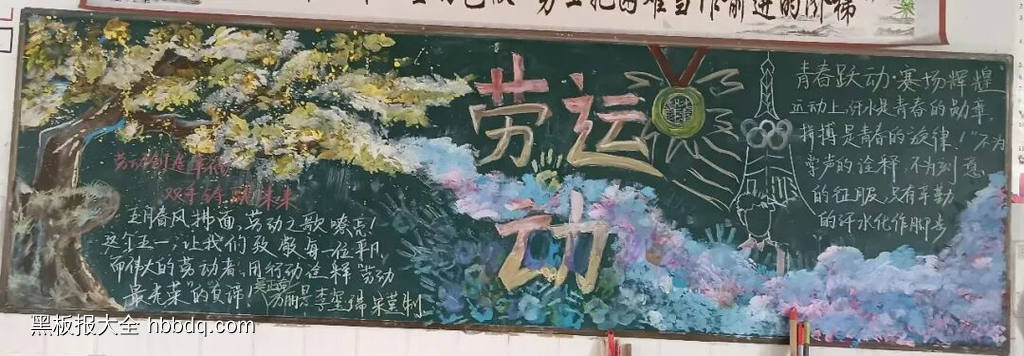 劳
运
动
双手铸就未来
五月春风拂面,劳动之歌嘹亮!
这个五一,让我们致敬每一位平凡
而伟大的劳动者,用行动诠释"劳动
最光荣"的真谛!
青春跃动·赛场辉煌
运动上,汗水是青春的勋章,
拼搏是青春的旋律!"不为
掌声的诠释,不为刻意
的征服,只有辛勤
的汗水化作脚步
黑板报大全 hbbdq.com